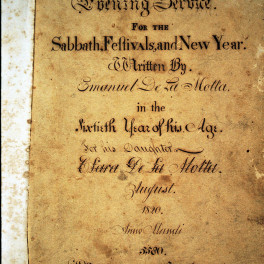 Evening Service.
For the
Sabbath, Festivals, and New Year.
Written By.
Emanuel De La Motta.
in the
Sixtieth Year of his Age.
For his Daughter
De La Motta.
August.
1820.
Anno Mundi
5580.